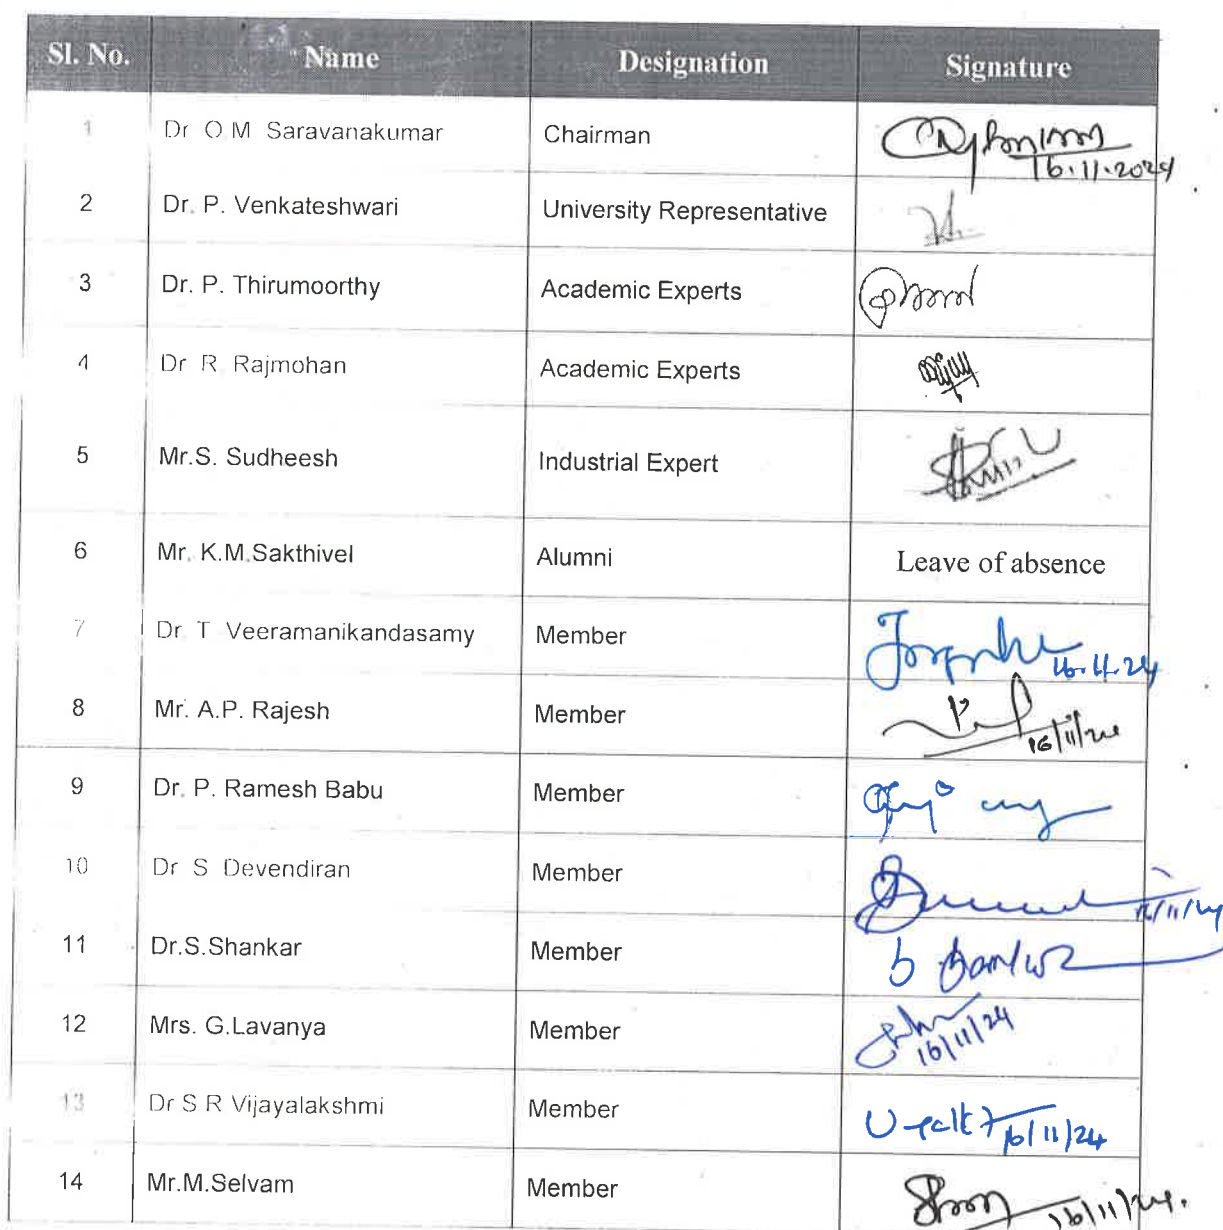 Sl. No. Name Designation Signature
1 Dr O.M Saravanakumar Chairman
16.11.2024
2 Dr. P. Venkateshwari University Representative
3 Dr. P. Thirumoorthy Academic Experts
4 Dr R. Rajmohan Academic Experts
5 Mr.S. Sudheesh Industrial Expert
6 Mr. K.M.Sakthivel Alumni Leave of absence
7 Dr. T Veeramanikandasamy Member
16.11.24
8 Mr. A.P. Rajesh Member
16/11/24
9 Dr. P. Ramesh Babu Member
10 Dr S Devendiran Member
16/11/24
11 Dr.S.Shankar Member
12 Mrs. G.Lavanya Member
16/11/24
13 Dr S R Vijayalakshmi Member
16/11/24
14 Mr.M.Selvam Member
16/11/24.